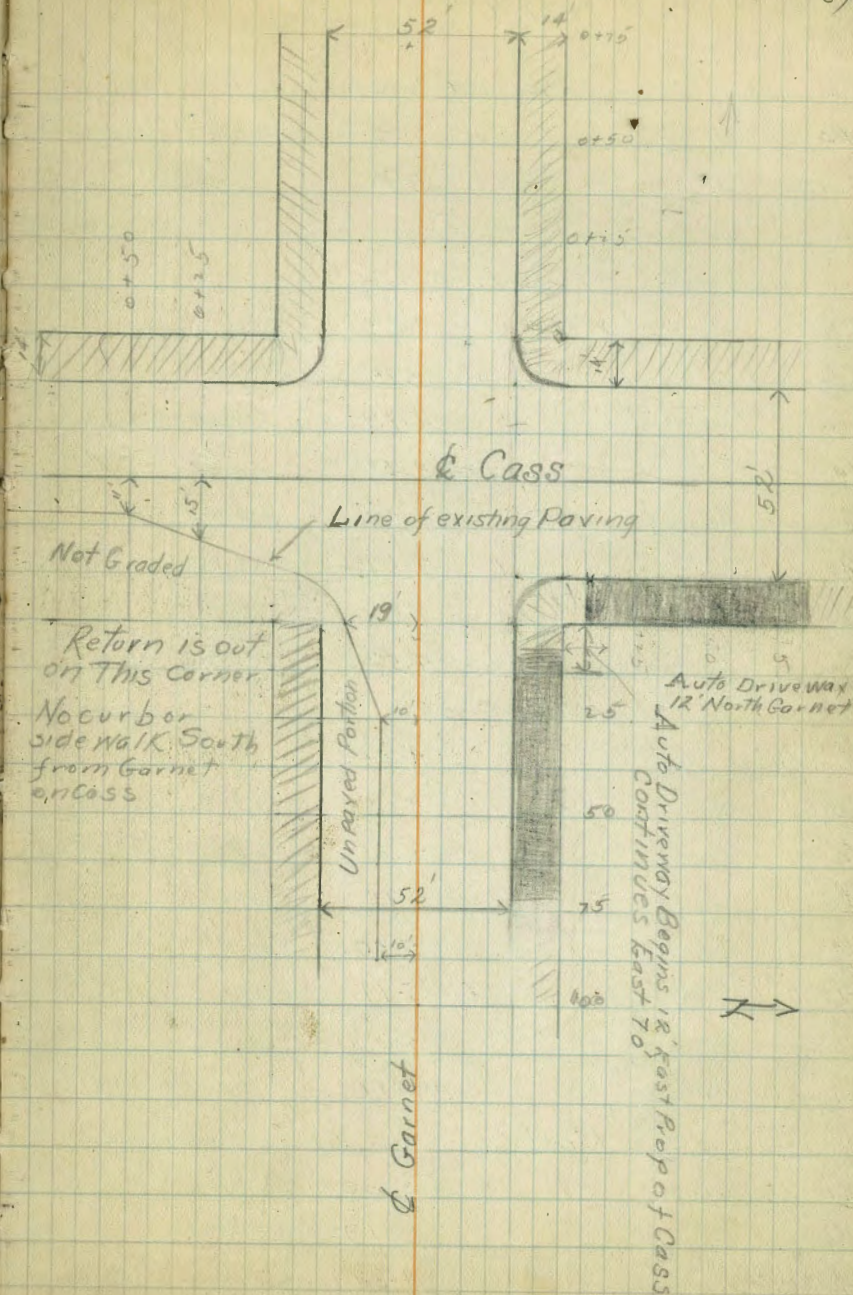 52'
14'
0+75
0+50
0+25
0+50
0+25
14'
14'
₵ Cass
52'
11'
15'
Line of existing Paving
Not Graded
19'
Return is out
on This Corner
No curb or
side walk South
from Garnet
on Cass
Unpaved Portion
10'
10'
52'
25
50
75
100
Auto Driveway
12' North Garnet
Auto Driveway Begins 12' East Prop of Cass
Continues East 70'
₵ Garnet